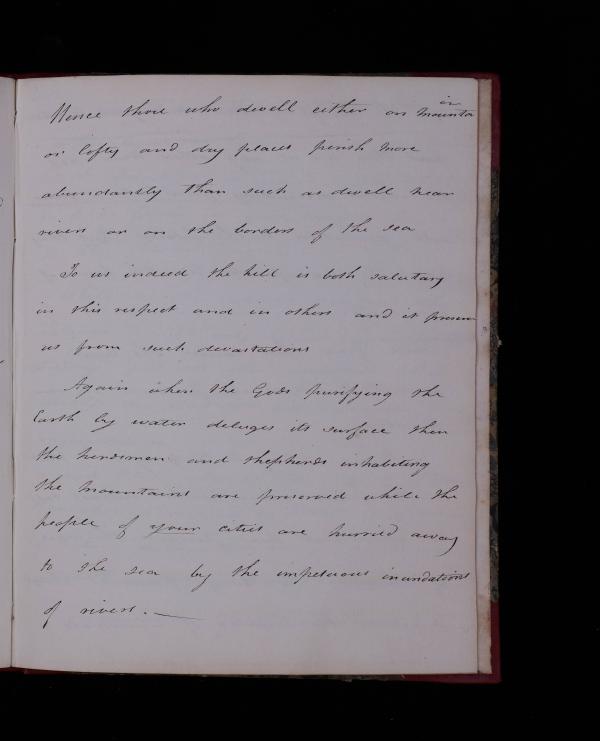 Hence those who dwell either on mountain
or lofty and dry places perish more
abundantly than such as dwell near
rivers or on the borders of the sea
To us indeed the hill is both salutary
in this respect and in others and it preserves
us from such devastations
Again when the Gods purifying the
Earth by water deluges its surface then
the herdsmen and shepherds inhabiting
the mountains are preserved while the
people of your cities are hurried away
to the sea by the impetuous inundations
of rivers. —